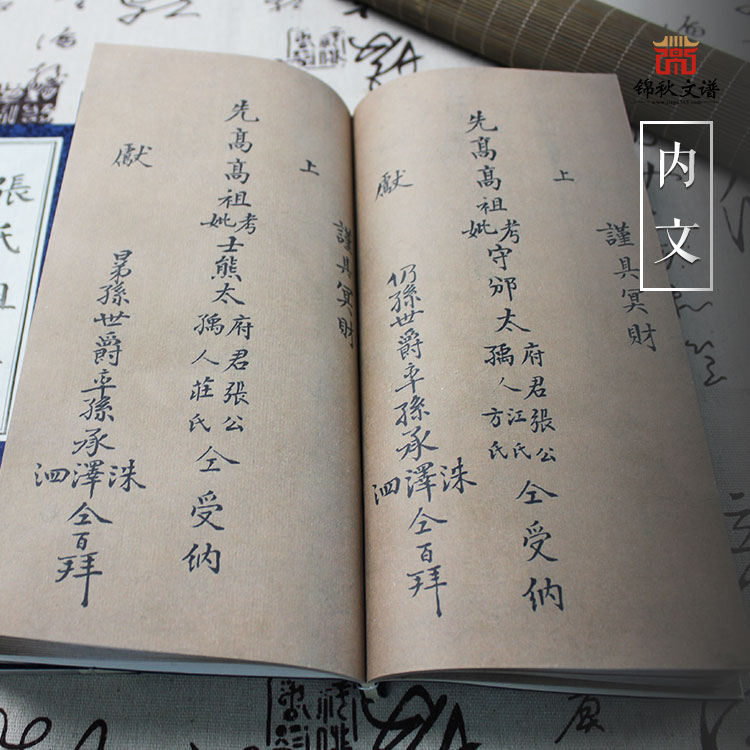 锦秋文谱
内文
謹具冥財
上
先髙髙祖考妣守邠太府君張公孺人江氏方氏仝受納
獻
仍孫世爵率孫承澤洙泗仝百拜
謹具冥財
上
先髙髙祖考妣士熊太府君張公孺人莊氏仝受納
獻
晜孫世爵率孫承澤洙泗仝百拜
張氏